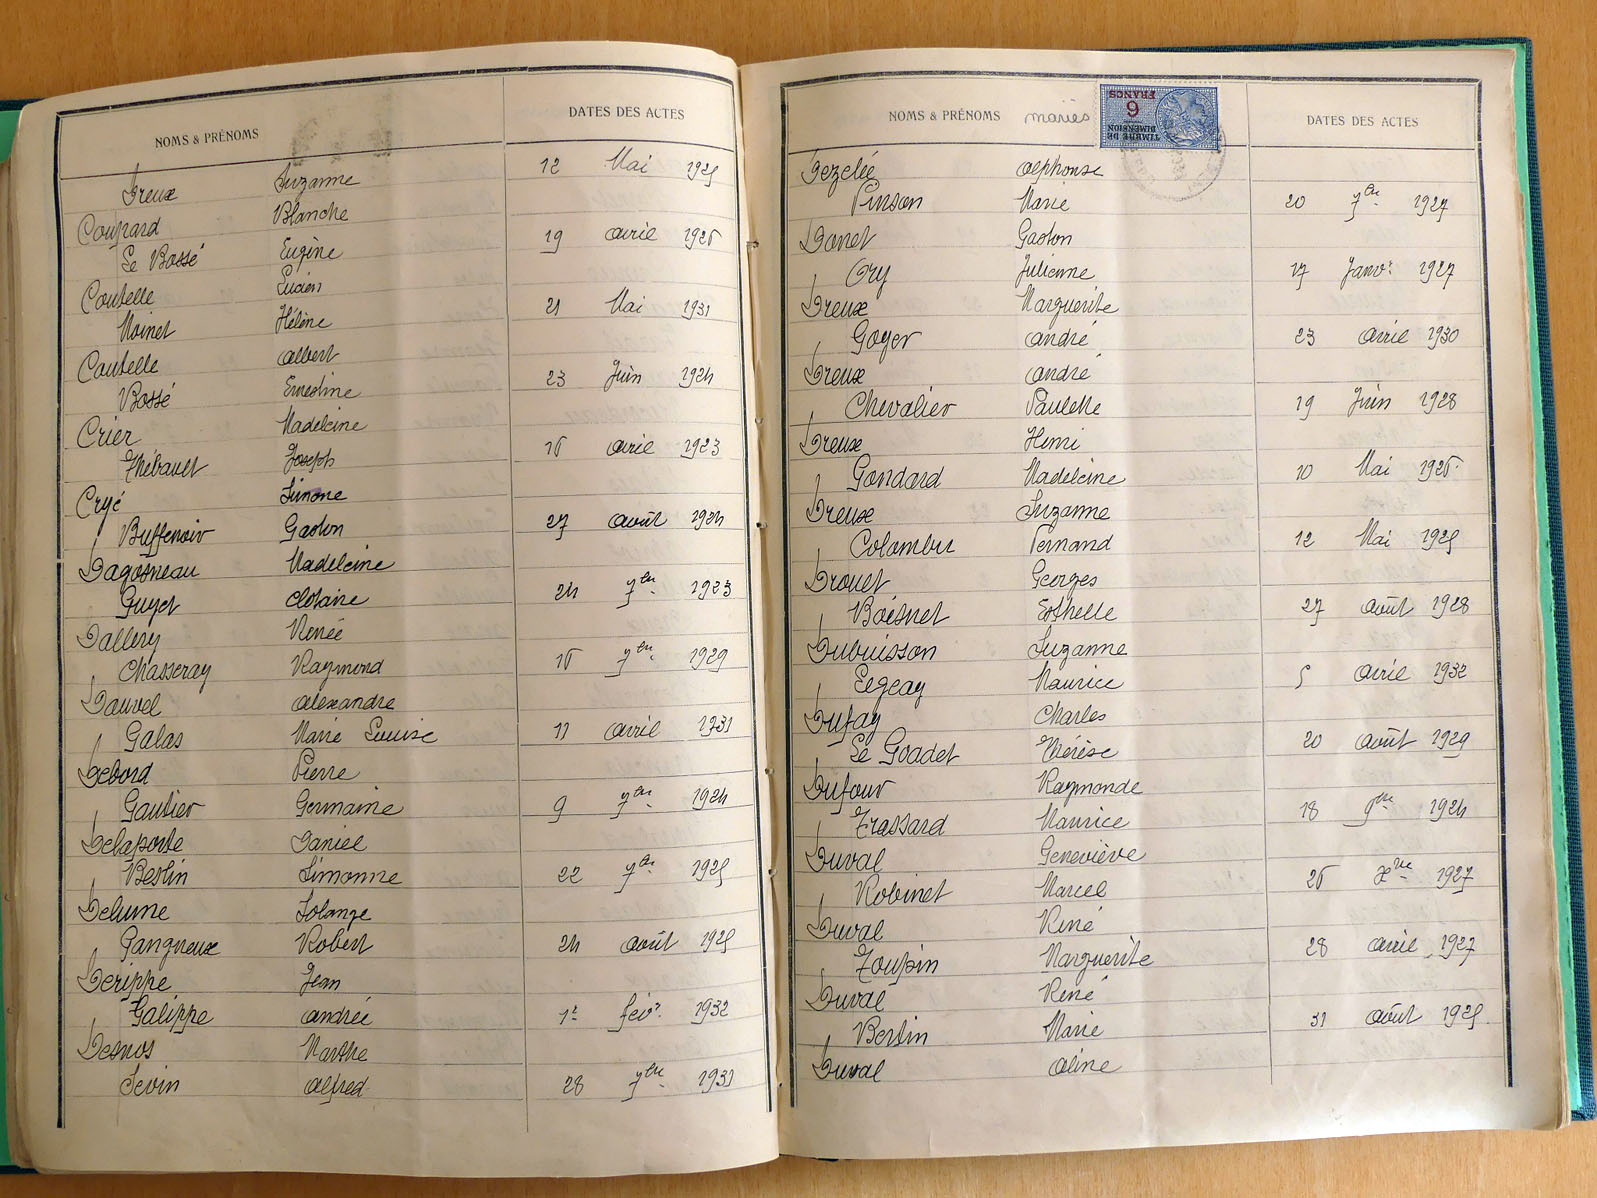 NOMS & PRÉNOMS DATES DES ACTES
Dreux Suzanne 12 Mai 1925
Coupard Blanche
Le Bossé Eugène 19 avril 1926
Coutelle Lucien
Moinet Hélène 21 Mai 1931
Coutelle albert
Bossé Ernestine 23 Juin 1924
Crier Madeleine
Thébault Joseph 16 avril 1923
Cryé Simone
Buffenoir Gaston 27 août 1924
Dagosneau Madeleine
Guyet clotaire 24 7bre 1923
Dallery Renée
Chasseray Raymond 16 7bre 1929
Dauvel alexandre
Galas Marie Louise 11 avril 1931
Debord Pierre
Gautier Germaine 9 7bre 1924
Delaporte Daniel
Bestin Simonne 22 7bre 1925
Delume Solange
Gangneux Robert 24 août 1925
Derippe Jean
Galippe andrée 1er févr 1932
Desnos Marthe
Sevin alfred 28 7bre 1931
NOMS & PRÉNOMS mariés DATES DES ACTES
TIMBRE DE DIMENSION
6 FRANCS
Dezelée alphonse
Pinson Marie 20 7bre 1927
Donet Gaston
Ory Julienne 17 Janvr 1927
Dreux Marguerite
Goyer andré 23 avril 1930
Dreux andré
Chevalier Paulette 19 Juin 1928
Dreux Henri
Gondard Madeleine 10 Mai 1926
Dreux Suzanne
Fernand 12 Mai 1925
Drouet Georges
Boisnet Esthelle 27 août 1928
Dubuisson Suzanne
Legeay Maurice 5 avril 1932
Dufay Charles
Le Goadet Thérèse 20 août 1929
Dufour Raymonde
Trassard Maurice 18 9bre 1924
Duval Geneviève
Robinet Marcel 26 Xbre 1927
Duval René
Toupin Marguerite 28 avril 1927
Duval René
Bertin Marie 31 août 1925
Duval aline